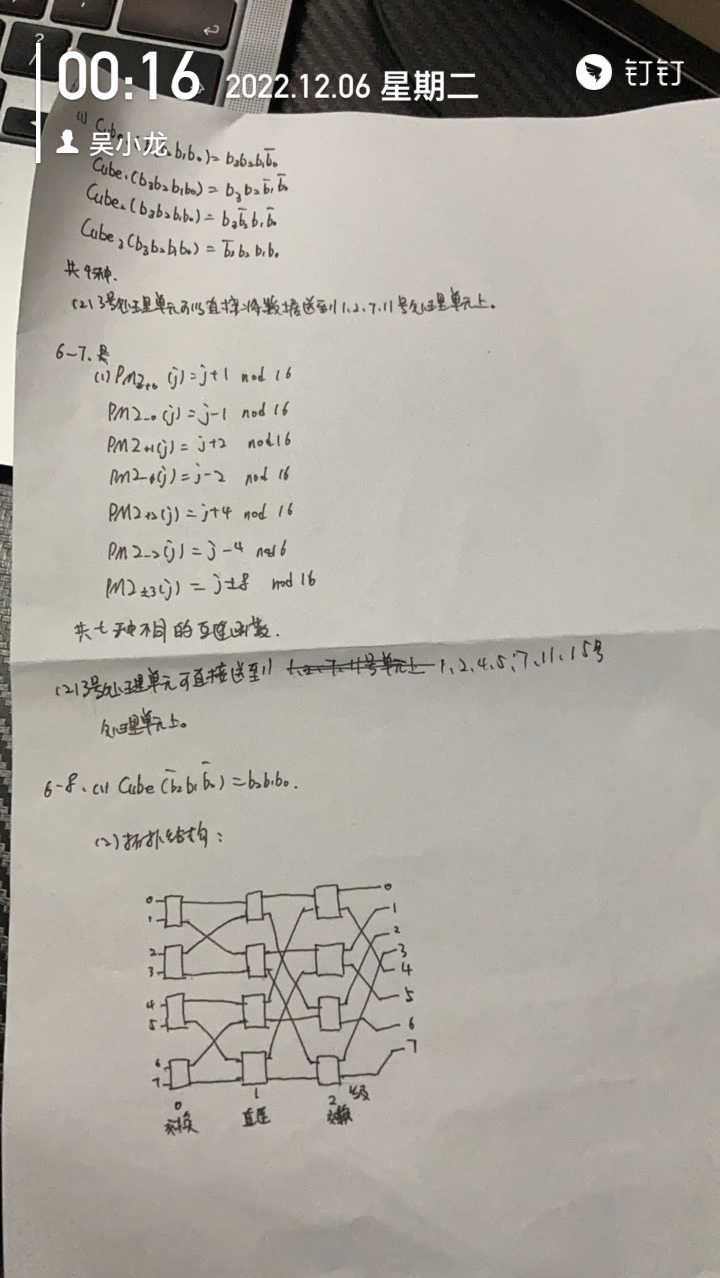 00:16 2022.12.06 星期二
钉钉
吴小龙
(1) Cube b₁b₀) = b₃b₂b₁b̄₀
Cube₁(b₃b₂b₁b₀) = b₃b₂b̄₁b̄₀
Cube₂(b₃b₂b₁b₀) = b₃b̄₂b₁b̄₀
Cube₃(b₃b₂b₁b₀) = b̄₃b₂b₁b₀
共4种.
(2) 3号处理单元可以直接将数据送到1、2、7、11号处理单元上。
6-7. 是
(1) PM2₊₀(j) = j+1 mod 16
PM2₋₀(j) = j-1 mod 16
PM2₊₁(j) = j+2 mod 16
PM2₋₁(j) = j-2 mod 16
PM2₊₂(j) = j+4 mod 16
PM2₋₂(j) = j-4 mod 16
PM2±₃(j) = j±8 mod 16
共七种不同的互连函数.
(2) 3号处理单元可直接送到 1、2、7、11号单元上 1、2、4、5、7、11、15号
处理单元上。
6-8. (1) Cube(b̄₂b₁b̄₀) = b₂b₁b₀.
(2) 拓扑结构:
0 0
1 1
2 2
3 3
4 4
5 5
6 6
7 7
0 1 2 级
交换 直连 交换